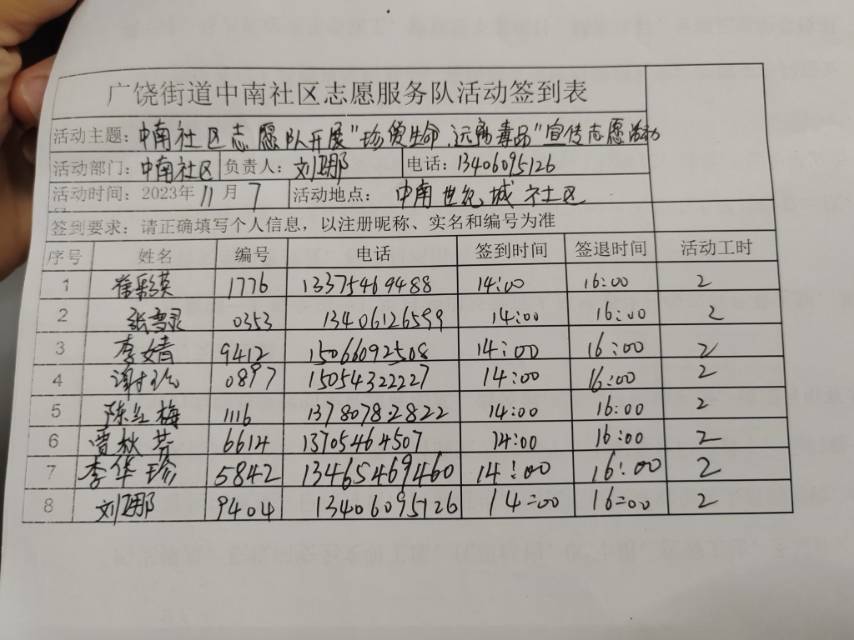 广饶街道中南社区志愿服务队活动签到表
活动主题：中南社区志愿队开展"珍爱生命，远离毒品"宣传志愿活动
活动部门：中南社区 负责人：刘亚娜 电话：13406095126
活动时间：2023年11月7 活动地点：中南世纪城社区
签到要求：请正确填写个人信息，以注册昵称、实名和编号为准
序号 姓名 编号 电话 签到时间 签退时间 活动工时
1 崔彩英 1776 13375469488 14:00 16:00 2
2 张 0353 13406126599 14:00 16:00 2
3 李婧 9412 15066092508 14:00 16:00 2
4 谢 0897 15054322227 14:00 16:00 2
5 陈红梅 1116 13780782822 14:00 16:00 2
6 曹秋芬 6614 13705464507 14:00 16:00 2
7 李华珍 5842 13465469460 14:00 16:00 2
8 刘亚娜 9404 13406095126 14:00 16:00 2